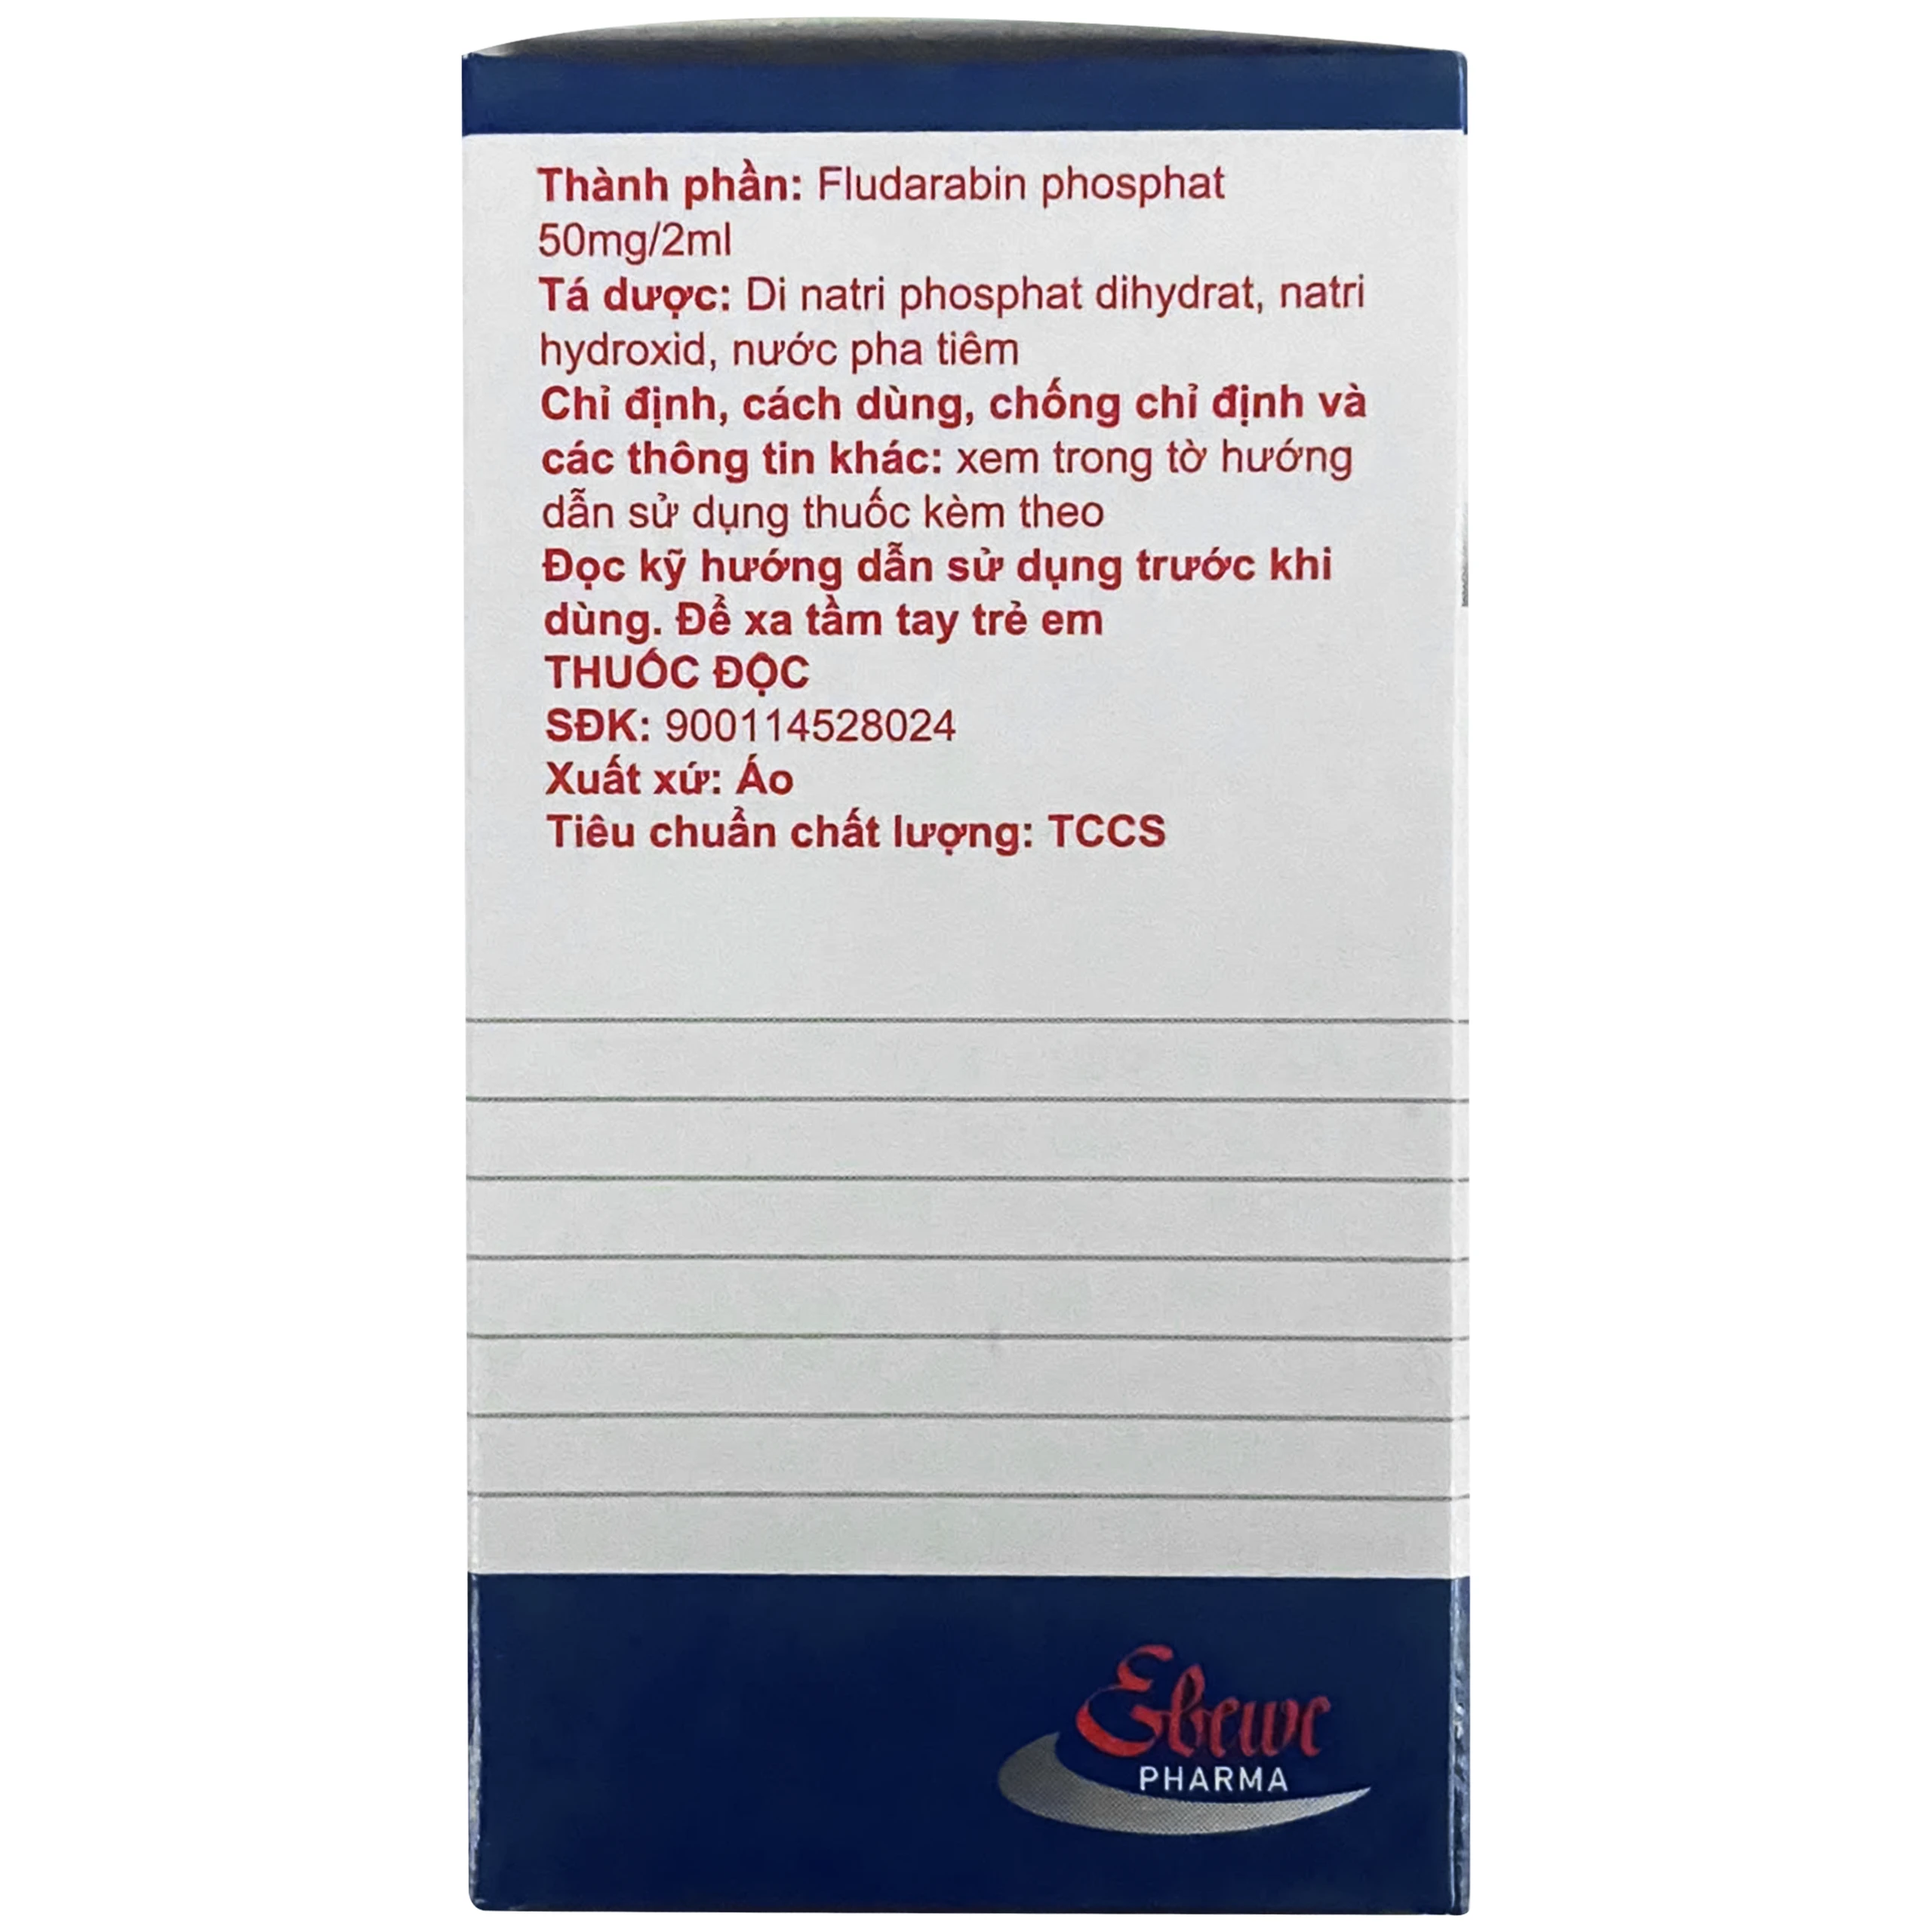 Thành phần: Fludarabin phosphat
50mg/2ml
Tá dược: Di natri phosphat dihydrat, natri
hydroxid, nước pha tiêm
Chỉ định, cách dùng, chống chỉ định và
các thông tin khác: xem trong tờ hướng
dẫn sử dụng thuốc kèm theo
Đọc kỹ hướng dẫn sử dụng trước khi
dùng. Để xa tầm tay trẻ em
THUỐC ĐỘC
SĐK: 900114528024
Xuất xứ: Áo
Tiêu chuẩn chất lượng: TCCS
Ebewe
PHARMA